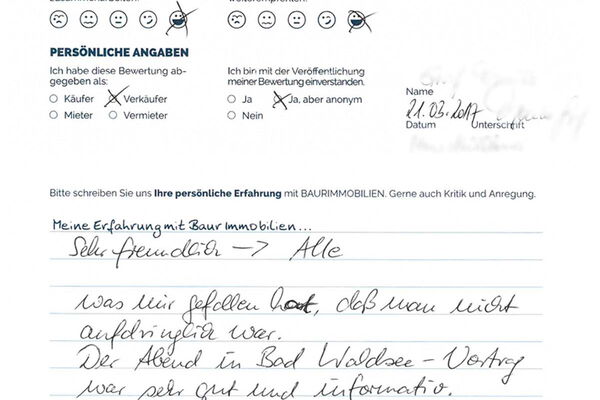 PERSÖNLICHE ANGABEN
Ich habe diese Bewertung ab-
gegeben als:
Käufer
Verkäufer
Mieter
Vermieter
Ich bin mit der Veröffentlichung
meiner Bewertung einverstanden.
Ja
Ja, aber anonym
Nein
Name
21.03.2017
Datum
Unterschrift
Bitte schreiben Sie uns Ihre persönliche Erfahrung mit BAURIMMOBILIEN. Gerne auch Kritik und Anregung.
Meine Erfahrung mit Baur Immobilien...
Sehr freundlich -> Alle
was mir gefallen hat, daß man nicht
aufdringlich war.
Der Abend in Bad Waldsee - Vortrag
war sehr gut und informativ.